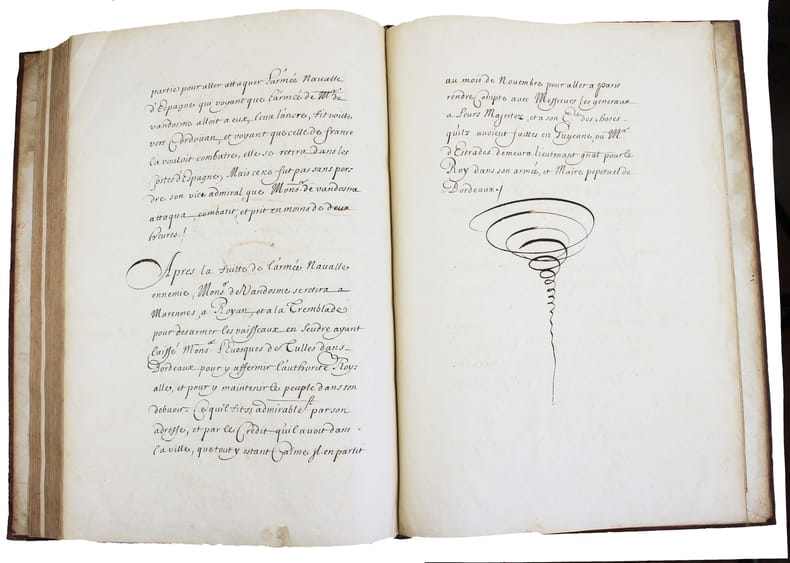 partie pour aller attaquer l'armée Navalle
d'Espagne qui voyant que l'armée de Mr de
vandosme alloit a eux, leva l'ancre, fit voille
vers Cordouan, et voyant que celle de france
la vouloit combatre, elle se retira dans les
Costes d'Espagne, Mais ce ne fut pas sans per-
dre son vice admiral que Monsr de vandosme
attaqua, combatit, et prit en moins de deux
heures./
Apres la fuitte de l'armée Navalle
ennemie, Monsr de Vandosme se retira a
Marennes, a Royan, et a la Tremblade
pour desarmer les vaisseaux en Seudre ayant
laissé Monsr l'Evesques de Tulles dans
Bordeaux pour y affermir l'authorité Roy-
alle, et pour y maintenir le peuple dans son
debuoir. Ce qu'il fit si admirablet par son
adresse, et par le Credit qu'il avoit dans
la ville, que tout y estant Calme Il en partit
au mois de Novembre pour aller a paris
rendre Compte avec Messieurs les generaux
a Leurs Majestez, et a son des choses
qu'ilz avoient faittes en Guyenne, ou Mr
d'Estrades demeura lieutenant gnāl pour le
Roy dans son armée, et Maire perpetuel de
Bordeaux./